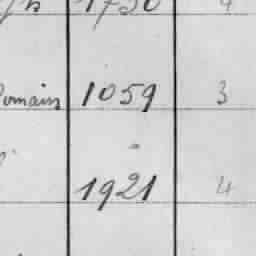 1750 4
Romain 1059 3
1921 4